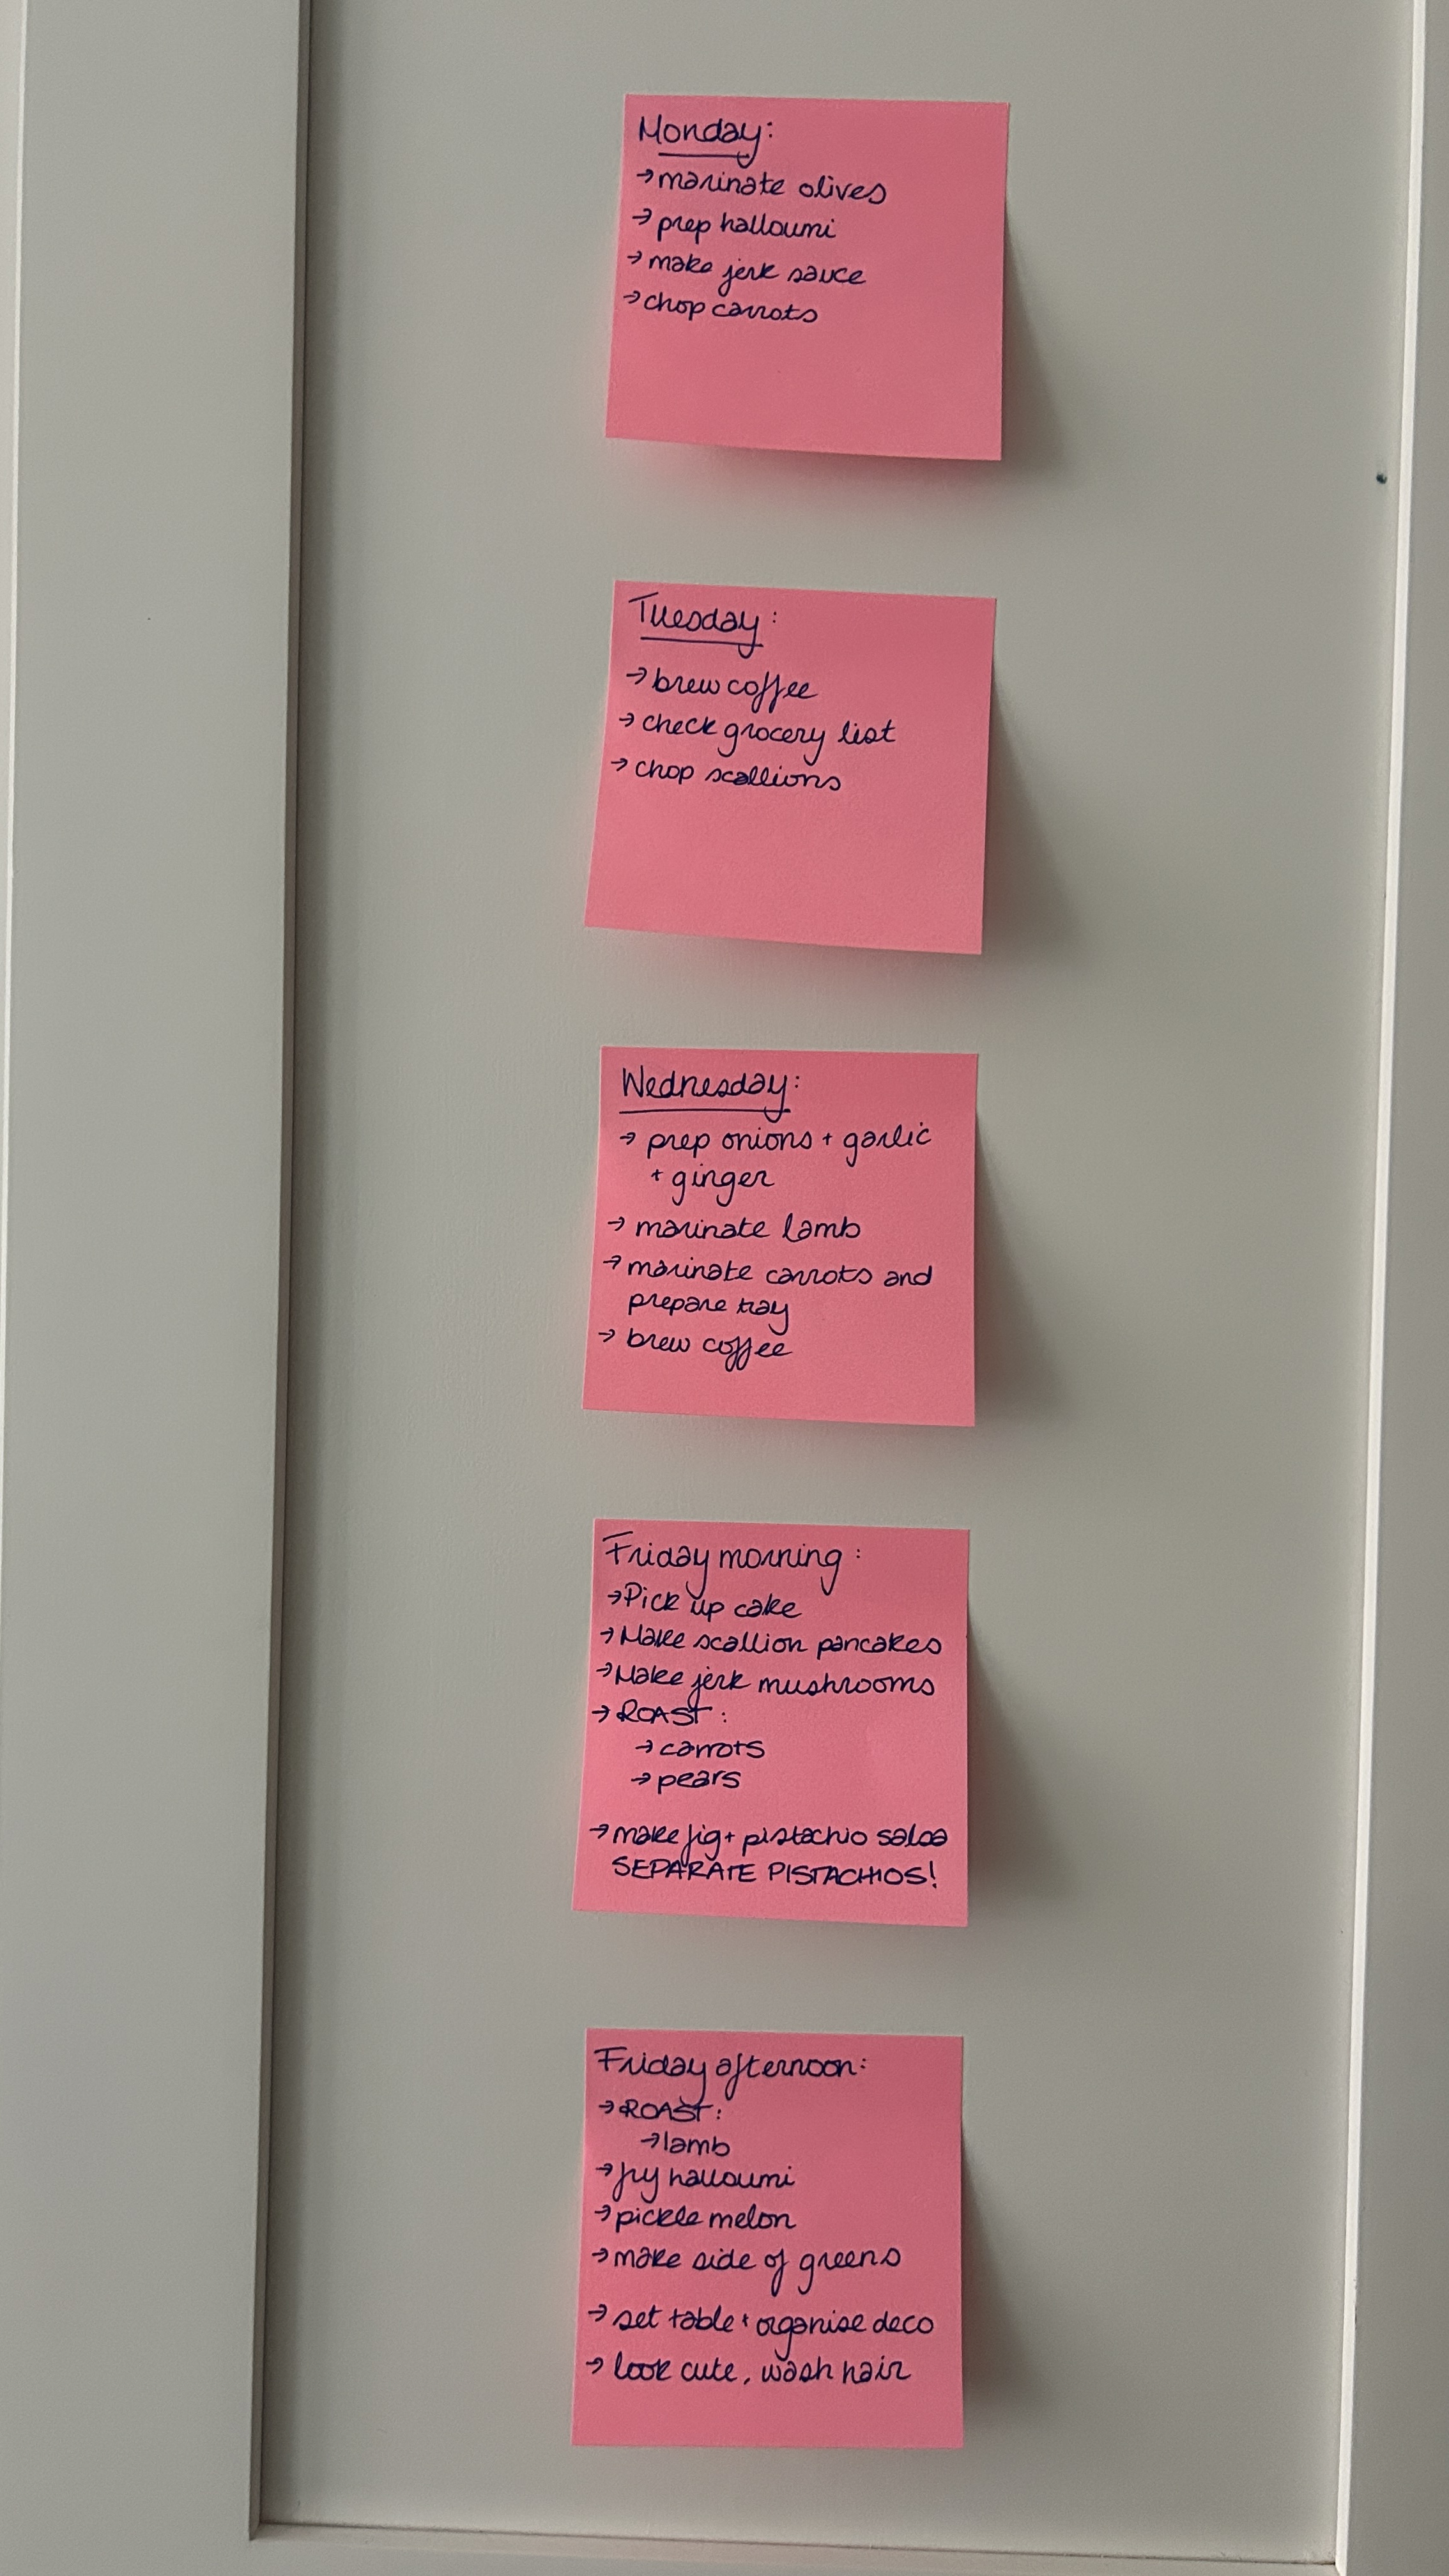 Monday:
→ marinate olives
→ prep halloumi
→ make jerk sauce
→ chop carrots
Tuesday:
→ brew coffee
→ check grocery list
→ chop scallions
Wednesday:
→ prep onions + garlic
+ ginger
→ marinate lamb
→ marinate carrots and
prepare tray
→ brew coffee
Friday morning:
→ Pick up cake
→ Make scallion pancakes
→ Make jerk mushrooms
→ ROAST:
→ carrots
→ pears
→ make fig + pistachio salsa
SEPARATE PISTACHIOS!
Friday afternoon:
→ ROAST:
→ lamb
→ fry halloumi
→ pickle melon
→ make side of greens
→ set table + organise deco
→ look cute, wash hair